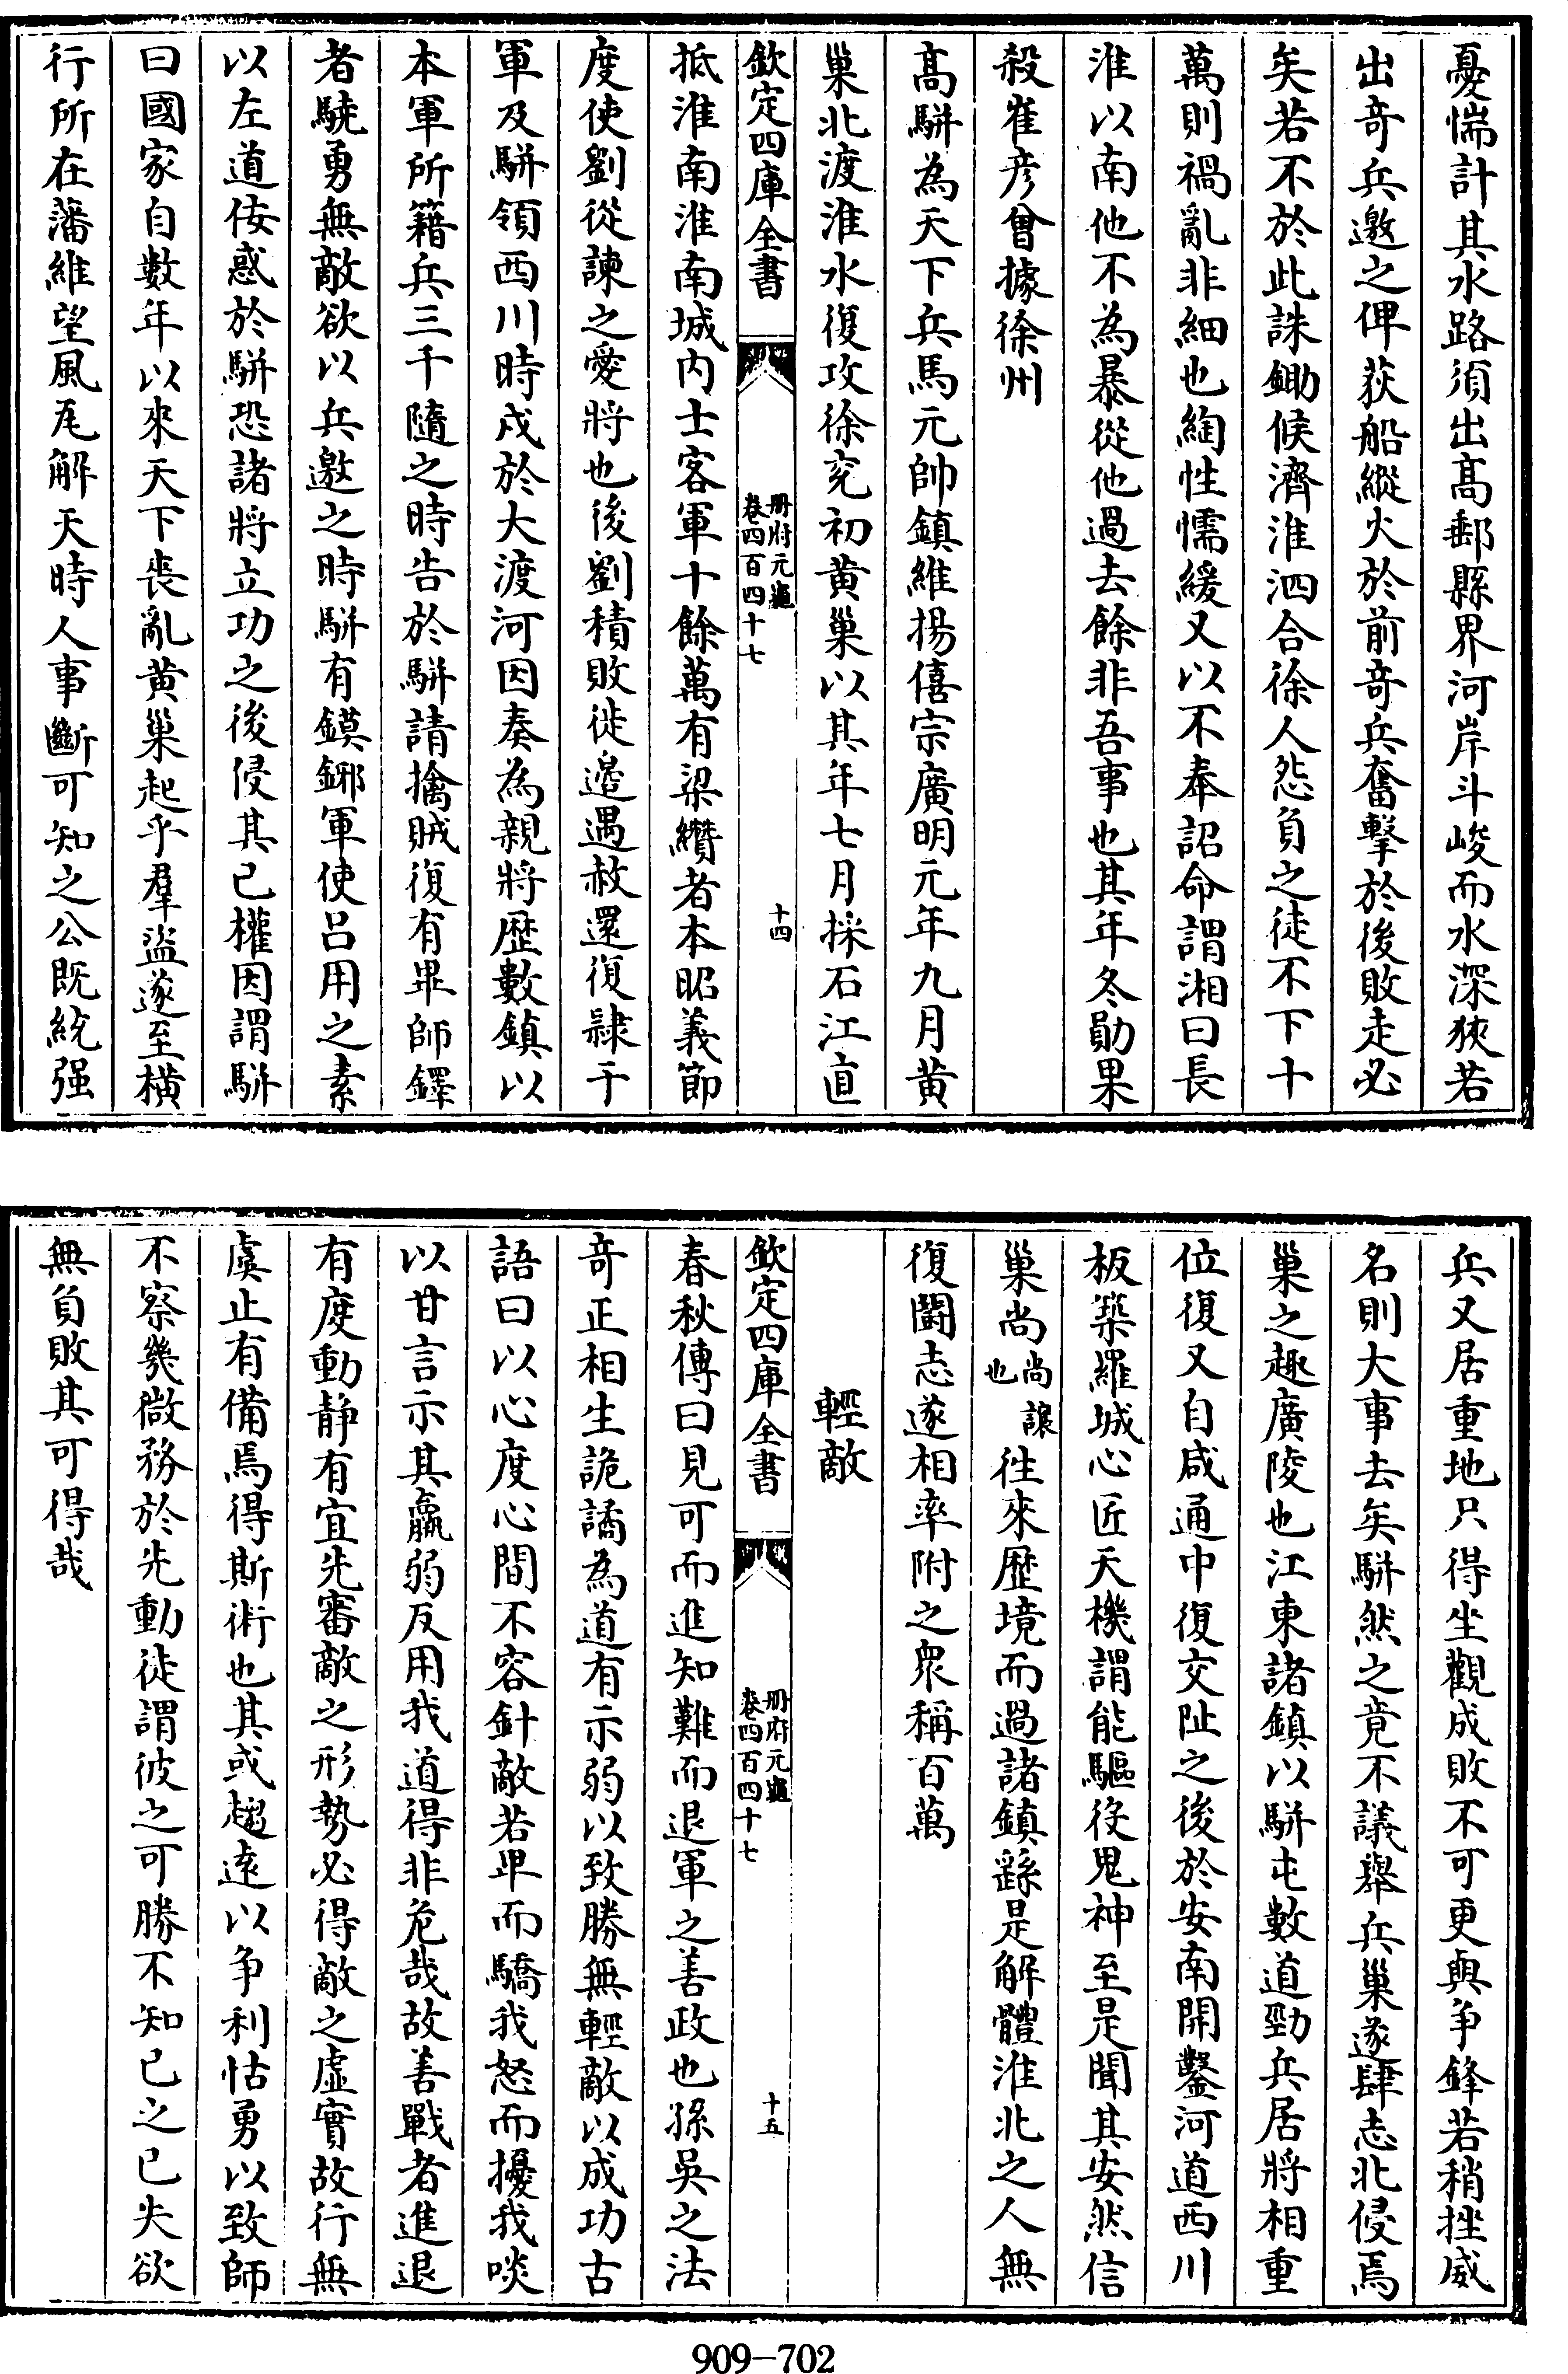 憂惴計其水路須出髙郵縣界河岸斗峻而水深狹若
出奇兵邀之俾荻船縱火於前奇兵奮擊於後敗走必
矣若不於此誅鋤候濟淮泗合徐人怨負之徒不下十
萬則禍亂非細也綯性懦緩又以不奉詔命謂湘曰長
淮以南他不為暴從他過去餘非吾事也其年冬勛果
殺崔彦曾據徐州
髙駢為天下兵馬元帥鎮維揚僖宗廣明元年九月黄
巢北渡淮水復攻徐兖初黄巢以其年七月採石江直
欽定四庫全書
冊府元龜
卷四百四十七
十四
抵淮南淮南城内士客軍十餘萬有梁纘者本昭義節
度使劉從諫之愛將也後劉積敗徙邉遇赦還復隷于
軍及駢領西川時戍於大渡河因奏為親將歴數鎮以
本軍所籍兵三千隨之時告於駢請擒賊復有畢師鐸
者驍勇無敵欲以兵邀之時駢有鏌鎁軍使吕用之素
以左道佞惑於駢恐諸將立功之後侵其已權因謂駢
曰國家自數年以來天下喪亂黄巢起乎羣盜遂至橫
行所在藩維望風瓦解天時人事斷可知之公既統强
兵又居重地只得坐觀成敗不可更與争鋒若稍挫威
名則大事去矣駢然之竟不議舉兵巢遂肆志北侵焉
巢之趣廣陵也江東諸鎮以駢屯數道勁兵居將相重
位復又自咸通中復交阯之後於安南開鑿河道西川
板築羅城心匠天機謂能驅役鬼神至是聞其安然信
巢尚尚讓也往來歴境而過諸鎮繇是解體淮北之人無
復鬭志遂相率附之衆稱百萬
輕敵
欽定四庫全書
冊府元龜
卷四百四十七
十五
春秋傳曰見可而進知難而退軍之善政也孫吳之法
奇正相生詭譎為道有示弱以致勝無輕敵以成功古
語曰以心度心間不容針敵若卑而驕我怒而擾我啖
以甘言示其羸弱反用我道得非危哉故善戰者進退
有度動静有宜先審敵之形勢必得敵之虛實故行無
虞止有備焉得斯術也其或趨逺以争利怙勇以致師
不察幾微務於先動徒謂彼之可勝不知已之已失欲
無負敗其可得哉
909-702